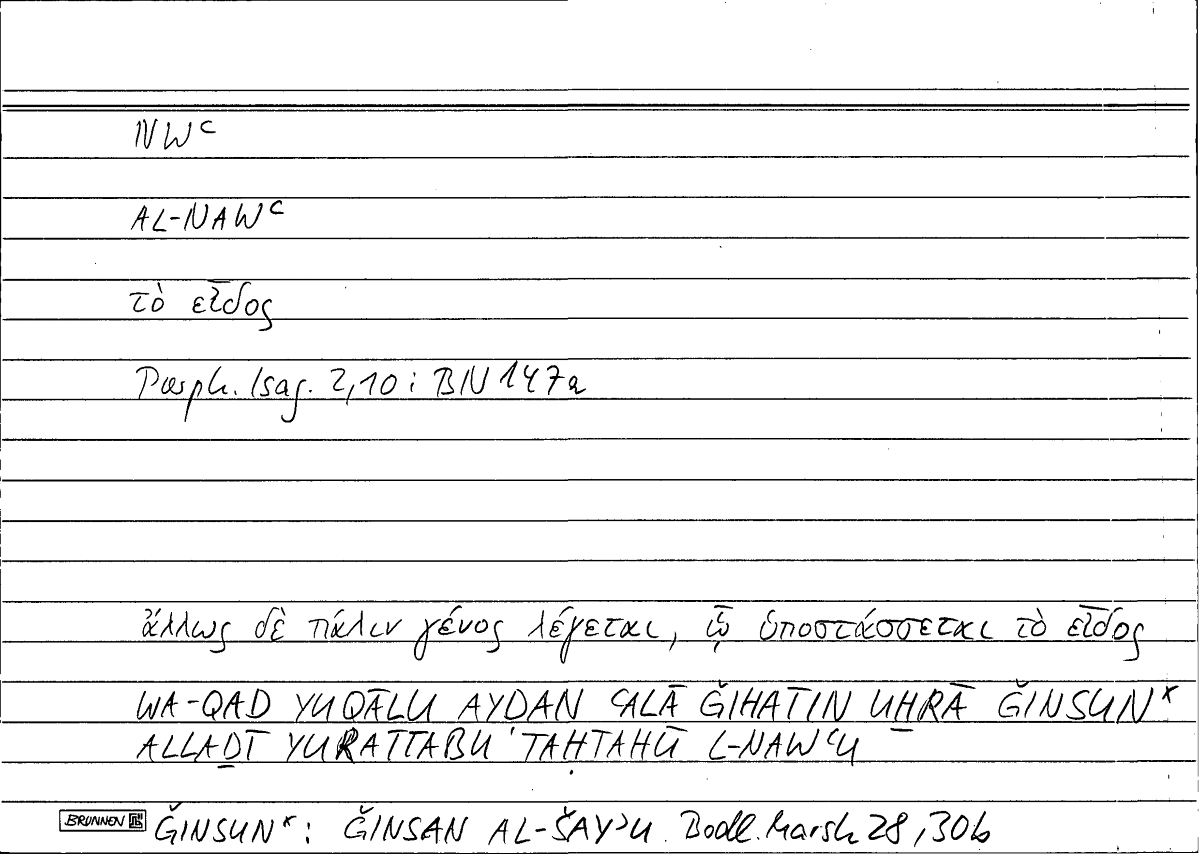 NWᶜ
AL-NAWᶜ
τὸ εἶδος
Porph. Isag. 2,10 : BN 147a
ἄλλως δὲ πάλιν γένος λέγεται, ᾧ ὑποστάσσεται τὸ εἶδος
WA-QAD YUQĀLU AYḌAN ᶜALĀ ǦIHATIN UḪRĀ ǦINSUN*
ALLAḎĪ YURATTABU TAḤTAHŪ L-NAWᶜU
BRUNNEN
ǦINSUN* : ǦINSAN AL-ŠAYʾU Bodl. Marsh 28, 30b